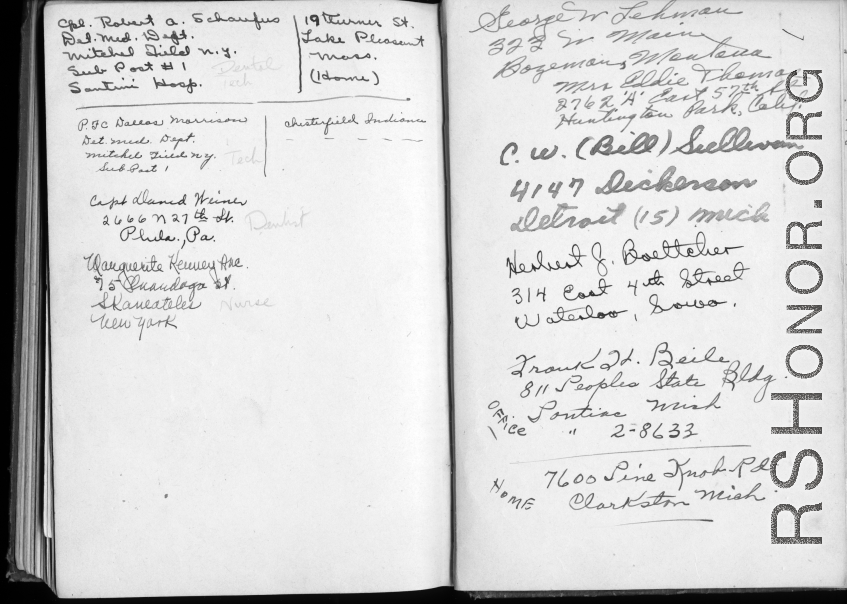 Cpl. Robert A. Schaufus
Det. Med. Dept.
Mitchel Field N.Y.
Sub Post #1
Santini Hosp.
Dental
Tech
19 Turner St.
Lake Pleasant
Mass.
(Home)
P.F.C Dallas Morrison
Det. Med. Dept.
Mitchel Field N.Y.
Sub Post 1
Tech
Chesterfield Indiana
Capt David Weiner
2666 N 27th St.
Phila., Pa.
Dentist
Marguerite Kenney Anc.
75 Onondaga St.
Skaneateles
New York
Nurse
George W Lehman
323 W Main
Bozeman, Montana
Mrs Eddie Thomas
2762 "A" East 57th
Huntington Park, Calif.
C. W. (Bill) Sullivan
4147 Dickerson
Detroit (15) Mich
Herbert J. Boettcher
314 East 4th Street
Waterloo, Iowa.
Frank H. Beile
811 Peoples State Bldg.
Pontiac Mich
OFFICE " 2-8633
HOME 7600 Pine Knob Rd
Clarkston Mich
RSHONOR.ORG